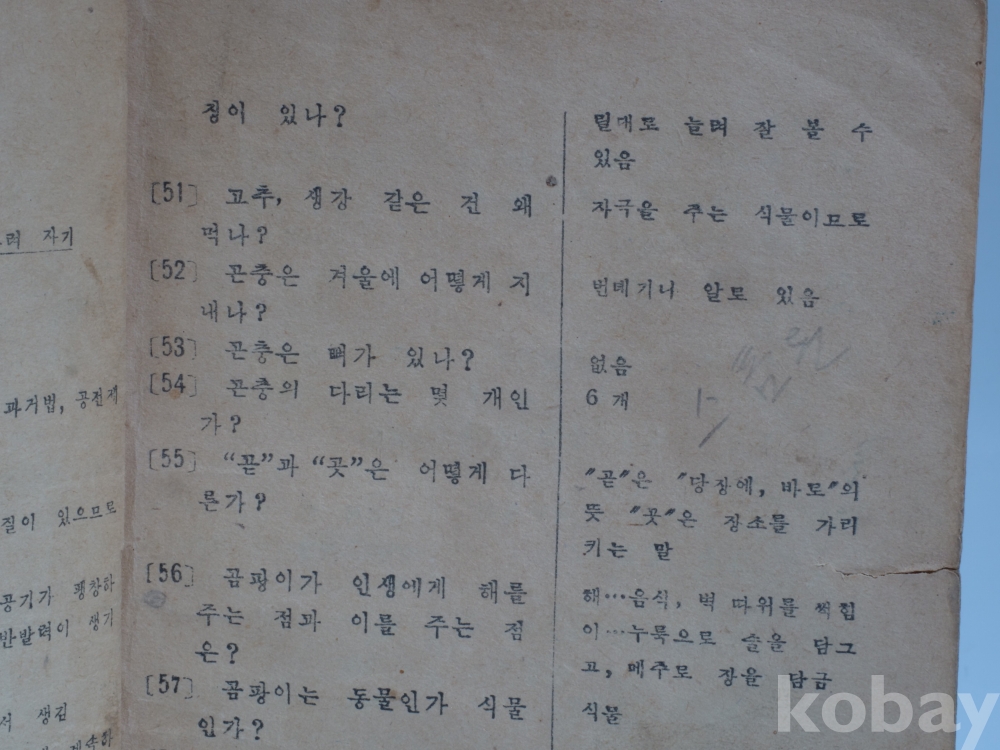 자기
과거법, 공전개
질이 있으므로
공기가 팽창하
반발력이 생기
서 생김
징이 있나?
[51] 고추, 생강 같은 건 왜
먹나?
[52] 곤충은 겨울에 어떻게 지
내나?
[53] 곤충은 뼈가 있나?
[54] 곤충의 다리는 몇 개인
가?
[55] “곧”과 “곳”은 어떻게 다
른가?
[56] 곰팡이가 인생에게 해를
주는 점과 이를 주는 점
은?
[57] 곰팡이는 동물인가 식물
인가?
늘려 잘 볼 수
있음
자극을 주는 식물이므로
번데기니 알로 있음
없음
6 개
“곧”은 “당장에, 바로”의
뜻 “곳”은 장소를 가리
키는 말
해…음식, 벽 따위를 썩힘
이…누룩으로 술을 담그
고, 메주로 장을 담금
식물
kobay